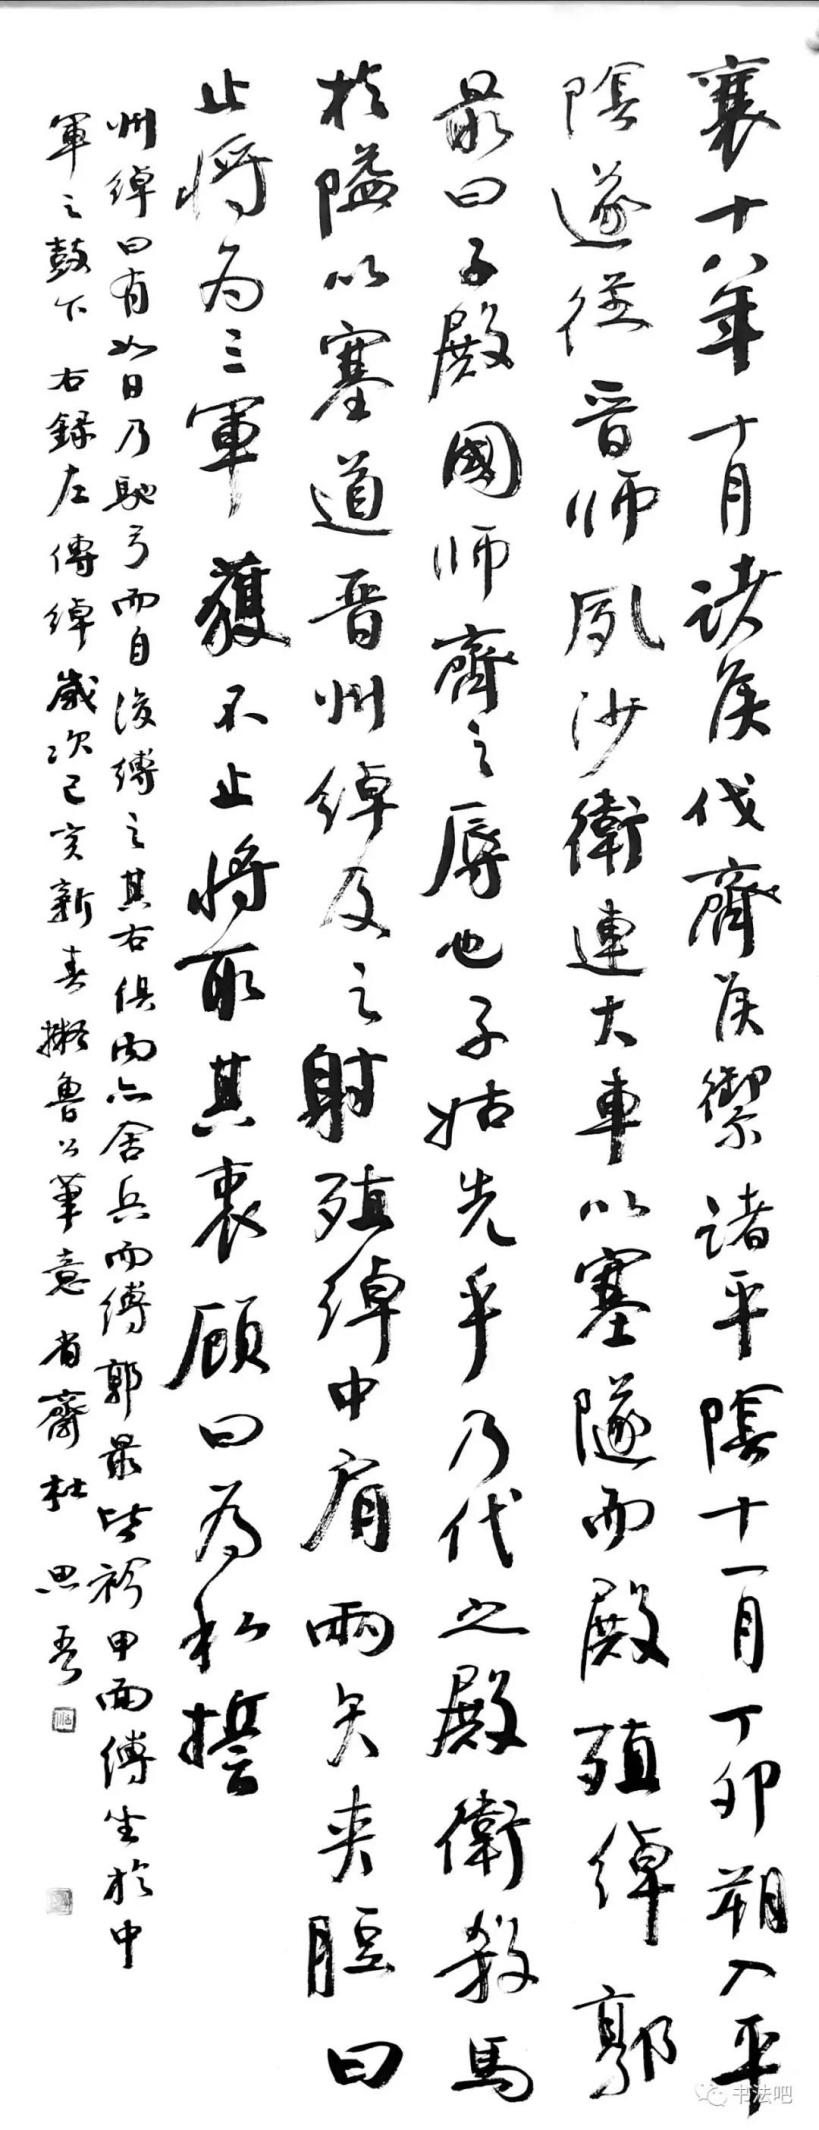 襄十八年十月诸侯伐齊侯禦諸平陰十一月丁卯朔入平
陰遂從晋师夙沙衛連大車以塞隧而殿殖綽郭
最曰子殿國师齊之辱也子姑先乎乃代之殿衛殺馬
於隘以塞道晋州綽及之射殖綽中肩兩矢夹脰曰
止将为三軍獲不止将取其衷顾曰为私誓
州綽曰有如日乃馳弓而自後縛之其右俱丙亦舍兵而縛郭最皆衿甲面縛坐於中
軍之鼓下 右録左傳綽歲次己亥新春擬魯公筆意省齋杜思吾
书法吧